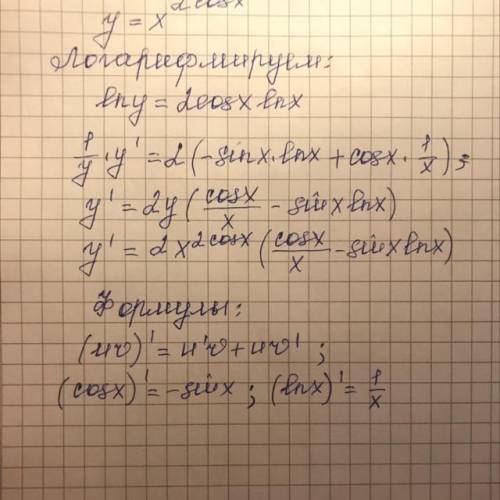 y = x^{2cosx}
Логарифмируем:
lny = 2cosx lnx
1/y · y' = 2(-sinx·lnx + cosx · 1/x);
y' = 2y(cosx/x - sinx lnx)
y' = 2x^{2cosx}(cosx/x - sinx lnx)
Формулы:
(uv)' = u'v + uv' ;
(cosx)' = -sinx ; (lnx)' = 1/x